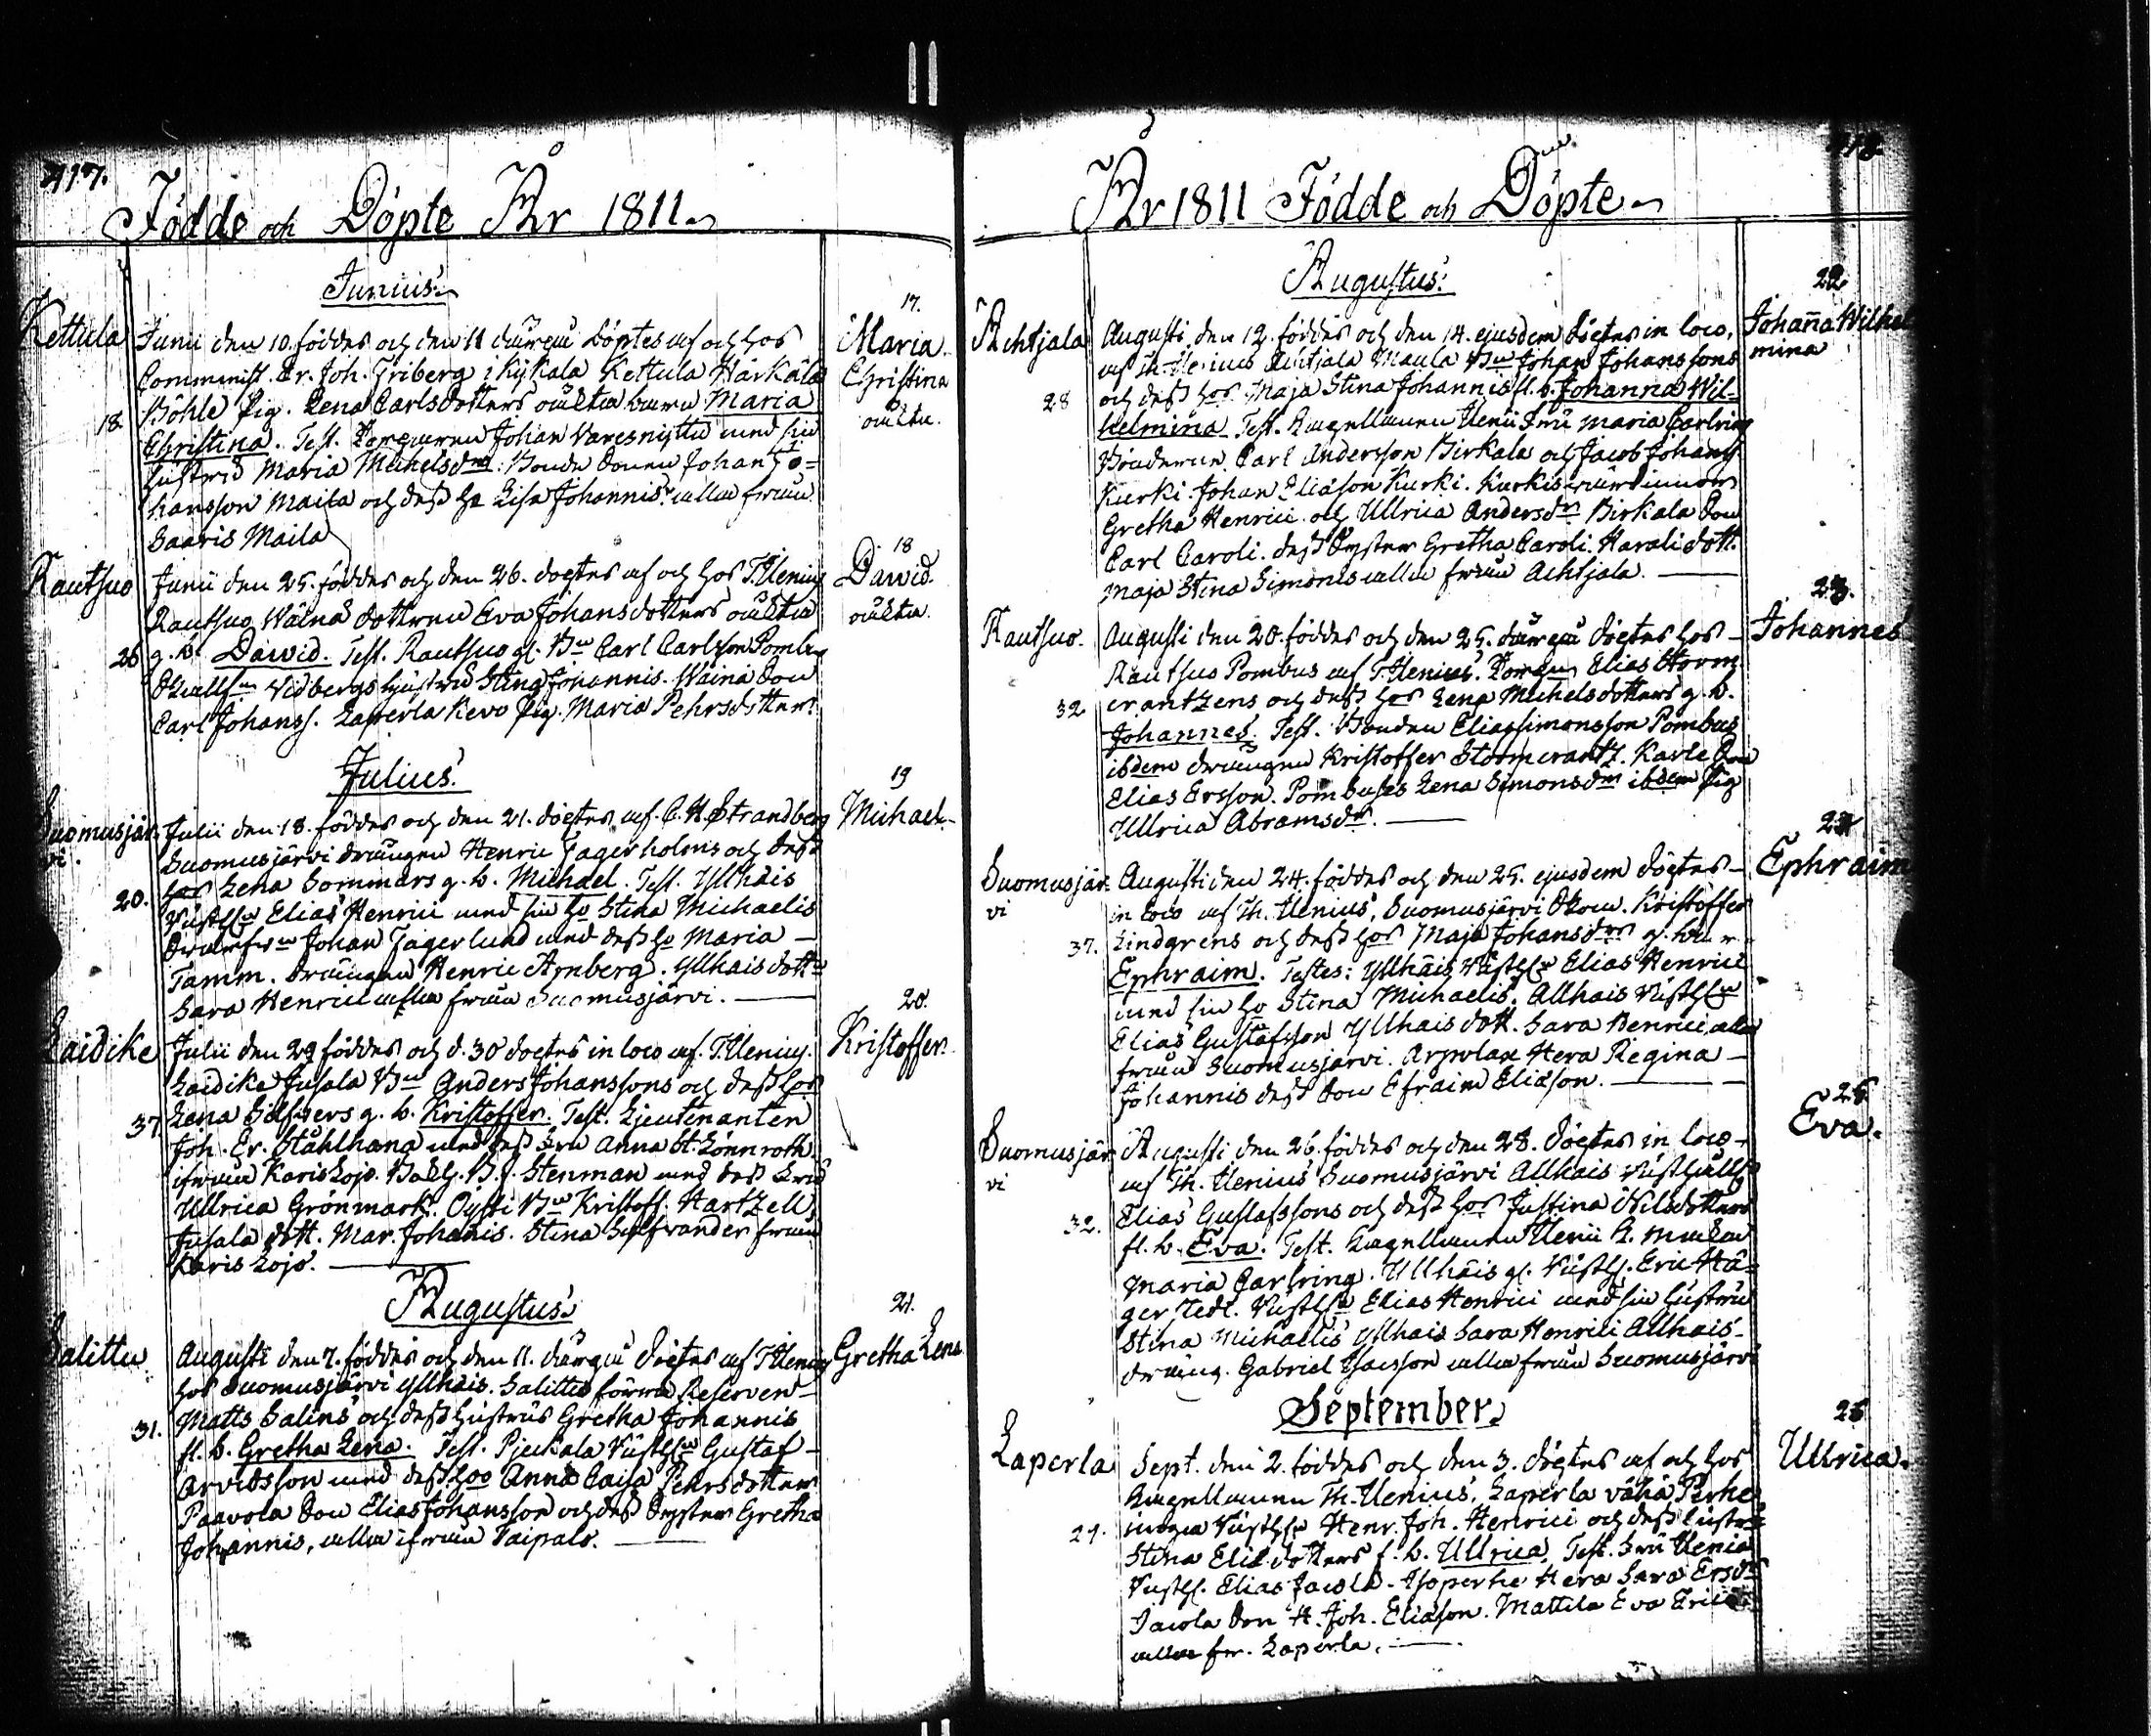 417.
Födde och Döpte År 1811.
Junius.
Kettula
17.
Maria
Christina
oäkta.
Junii den 10. föddes och den 11 därpå döptes af och hos
Comminist. Er. Joh. Friberg i Kykala Kettula Härkälä
Böhle Pig. Lena Carlsdotters oäkta barn Maria
18.
Christina. Test. Torparen Johan Varesnijttu med sin
hustru Maria Michelsdr. Bonde Sonen Johan Jo=
hansson Maila och dess ho Lisa Johannis. alla från
Saaris Maila
Rautsuo
18
Dawid.
oäkta.
Junii den 25. föddes och den 26. döptes af och hos T. Ilenius
Rautsuo Wäinä dottren Eva Johansdotters oäkta
26
g. b. Dawid. Test. Rautsuo gl. Bn Carl Carlsson Pombu
Vidbergs hustru Stina Johannis. Wäinä Son
Carl Johanss. Laperla Kevo Pig. Maria Pehrsdotter.
Julius.
Suomusjär
vi.
19
Michael.
Julii den 18. föddes och den 21. döptes af C. H. Strandberg
Suomusjärvi drängen Henric Jagerholms och dess
hos Lena Sommars g. b. Michael. Test. Yllhäis
20.
Elias Henrici med sin ho Stina Michaelis
Johan Jagerlund med dess ho Maria
Tamm. drängen Henric Arnberg. Yllhais dottr
Sara Henrici alla från Suomusjärvi.
Laidike
20.
Kristoffer.
Julii den 29 föddes och d. 30 döptes in loco af T. Ilenius.
Laidike Jusala Bn Anders Johanssons och dess hos
37
Lena g. b. Kristoffer. Test. Lieutenanten
Joh. Er. Stålhana med dess Fru Anna St. Lönnroth.
ifrån Karis Lojo. Stenman med dess Fru
Ullrica Grönmark. Oysti Bn Kristoff. Hartzell,
Jusala dott. Mar. Johanis. Stina Silfvander från
Karis Lojo.
Augustus.
Salittu
21.
Gretha Lena
Augusti den 7. föddes och den 11. därpå döptes af T. Ilenius
hos Suomusjärvi Yllhäis. Salittu förra Reserven
Matts Salins och dess hustrus Gretha Johannis
31.
fl. b. Gretha Lena. Test. Gustaf
Arvidsson med dess hoo Anna Caisa Pehrsdotter
Paavola Son Elias Johansson och dess Syster Gretha
Johannis, alla ifrån Taipale.
418.
År 1811 Födde och Döpte
Augustus.
Achtjala
22
Johanna Wilhel
mina
Augusti den 12. föddes och den 14. ejusdem döptes in loco,
af Th. Ilenius Achtjala Maula Bn Johan Johanssons
och dess hos Maja Stina Johannis fl. b. Johanna Wil-
28
helmina. Test. Kapellanen Ilenii Fru Maria Carlring
Bönderne Carl Andersson Birkala och Jacob Johans.
Kurki. Johan Eliasson Kurki. Kurkis
Gretha Henrici och Ullrica Andersdr Birkala Son
Carl Caroli. dess Syster Gretha Caroli. Harali dott.
Maja Stina Simonis alla från Achtjala.
Rautsuo.
23.
Johannes
Augusti den 20. föddes och den 25. därpå döptes hos
Rautsuo Pombus af T. Ilenius. Torpn Elias Storm
32
crantzens och dess hos Lena Michelsdotters g. b.
Johannes. Test. Bonden Elias Simonsson Pombus
ibdem drängen Kristoffer Stormcrantz. Karle Son
Elias Ersson. Pombuses Lena Simonsdr ibdem Pig
Ullrica Abramsdr.
Suomusjär
vi
24
Ephraim
Augusti den 24. föddes och den 25. ejusdem döptes
in loco af Th. Ilenius, Suomusjärvi Kristoffer
37.
Lindgrens och dess hos Maja Johansdrs g. b.
Ephraim. Testes: Yllhäis Elias Henrici
med sin ho Stina Michaelis. Allhais
Elias Gustafsson Yllhais dott. Sara Henrici alla
från Suomusjärvi. Hera Regina
Johannis dess Son Efraim Eliasson.
Suomusjär
vi
25
Eva.
Augusti den 26. föddes och den 28. döptes in loco
af Th. Ilenius Suomusjärvi Allhais
Elias Gustafssons och dess hos Justina Nilsdotters
32.
fl. b. Eva. Test. Kapellanen Ilenii
Maria Carlring. Ullhäis gl. Eric Hä=
gerstedt. Elias Henrici med sin hustru
Stina Michaelis Yllhais Sara Henrici Allhais
dräng. Gabriel Isacsson alla från Suomusjärvi
September.
Laperla
26
Ullrica.
Sept. den 2. föddes och den 3. döptes af och hos
Kapellanen Th. Ilenius, Laperla vähä Perhe
Henr. Joh. Henrici och dess hustru
29.
Stina Elis dotters f. b. Ullrica. Test. Fru Ilenia
Elias Jacola. Isoperhe Hera Sara Ersdr
Jacola Son H. Joh. Eliasson. Mattila Eva Erici
alla fr. Laperla.